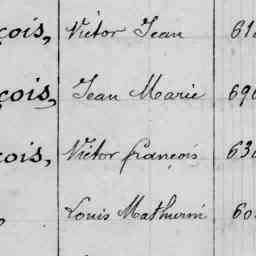 çois, Victor Jean 61
çois, Jean Marie 690
çois, Victor françois 630
Louis Mathurin 60